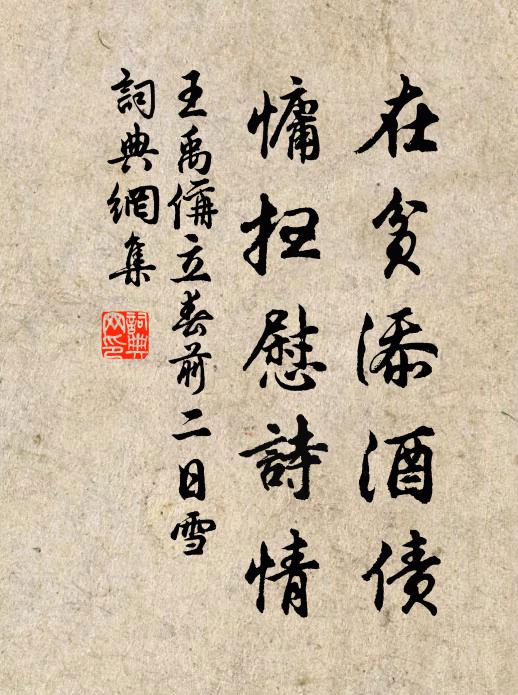 在貧添酒債
慵掃慰詩情
王禹偁立春前二日雪
詞典網集
詞典
网印